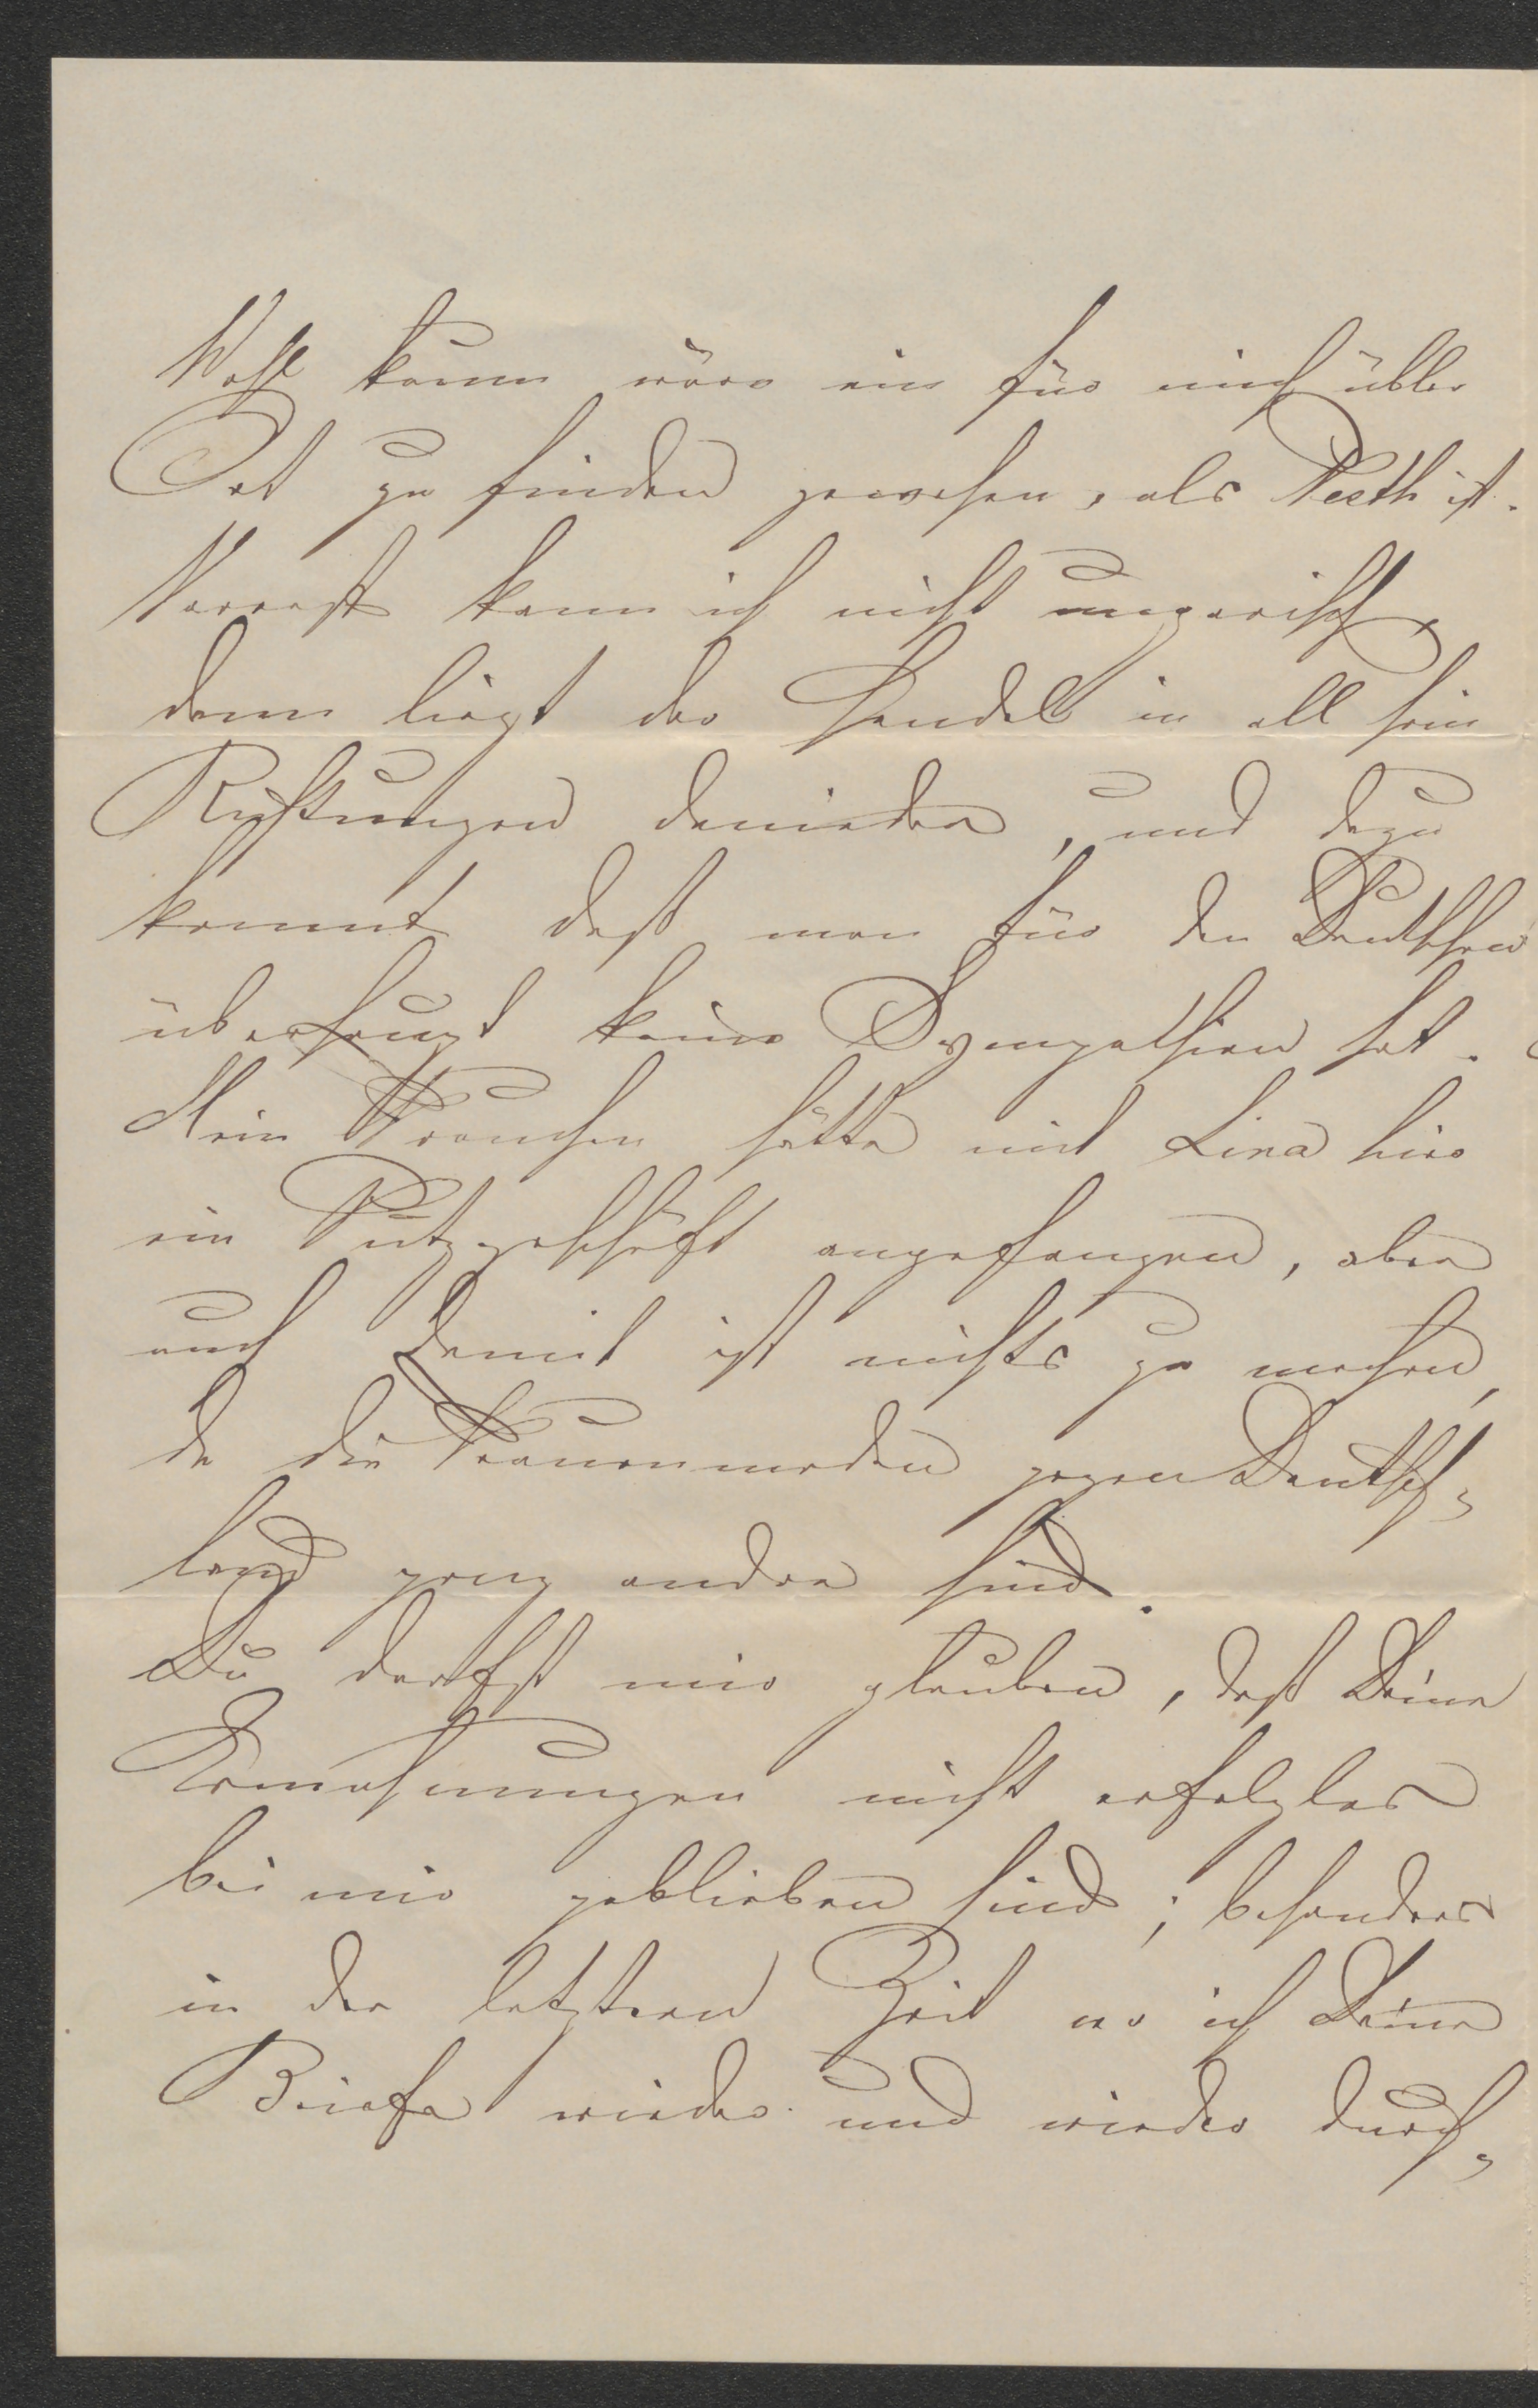 Wohl kaum wäre ein für mich übler
Ort zu finden gewesen, als Pesth ist.
Vorerst kann ich nicht ungarisch,
dann liegt der Handel in all sein
Richtungen danieder, und dazu
kommt daß man für den Deutschen
überhaupt keine Sympathien hat.
Mein Frauchen hätte mit Lina hier
ein Putzgeschäft angefangen, aber
auch damit ist nichts zu machen,
da die Frauenmoden gegen Deutsch=
land ganz andre sind.
Du darfst mir glauben, daß Deine
Ermahnungen nicht erfolglos
bei mir geblieben sind; besonders
in der letztern Zeit wo ich Deine
Briefe wieder und wieder durch=